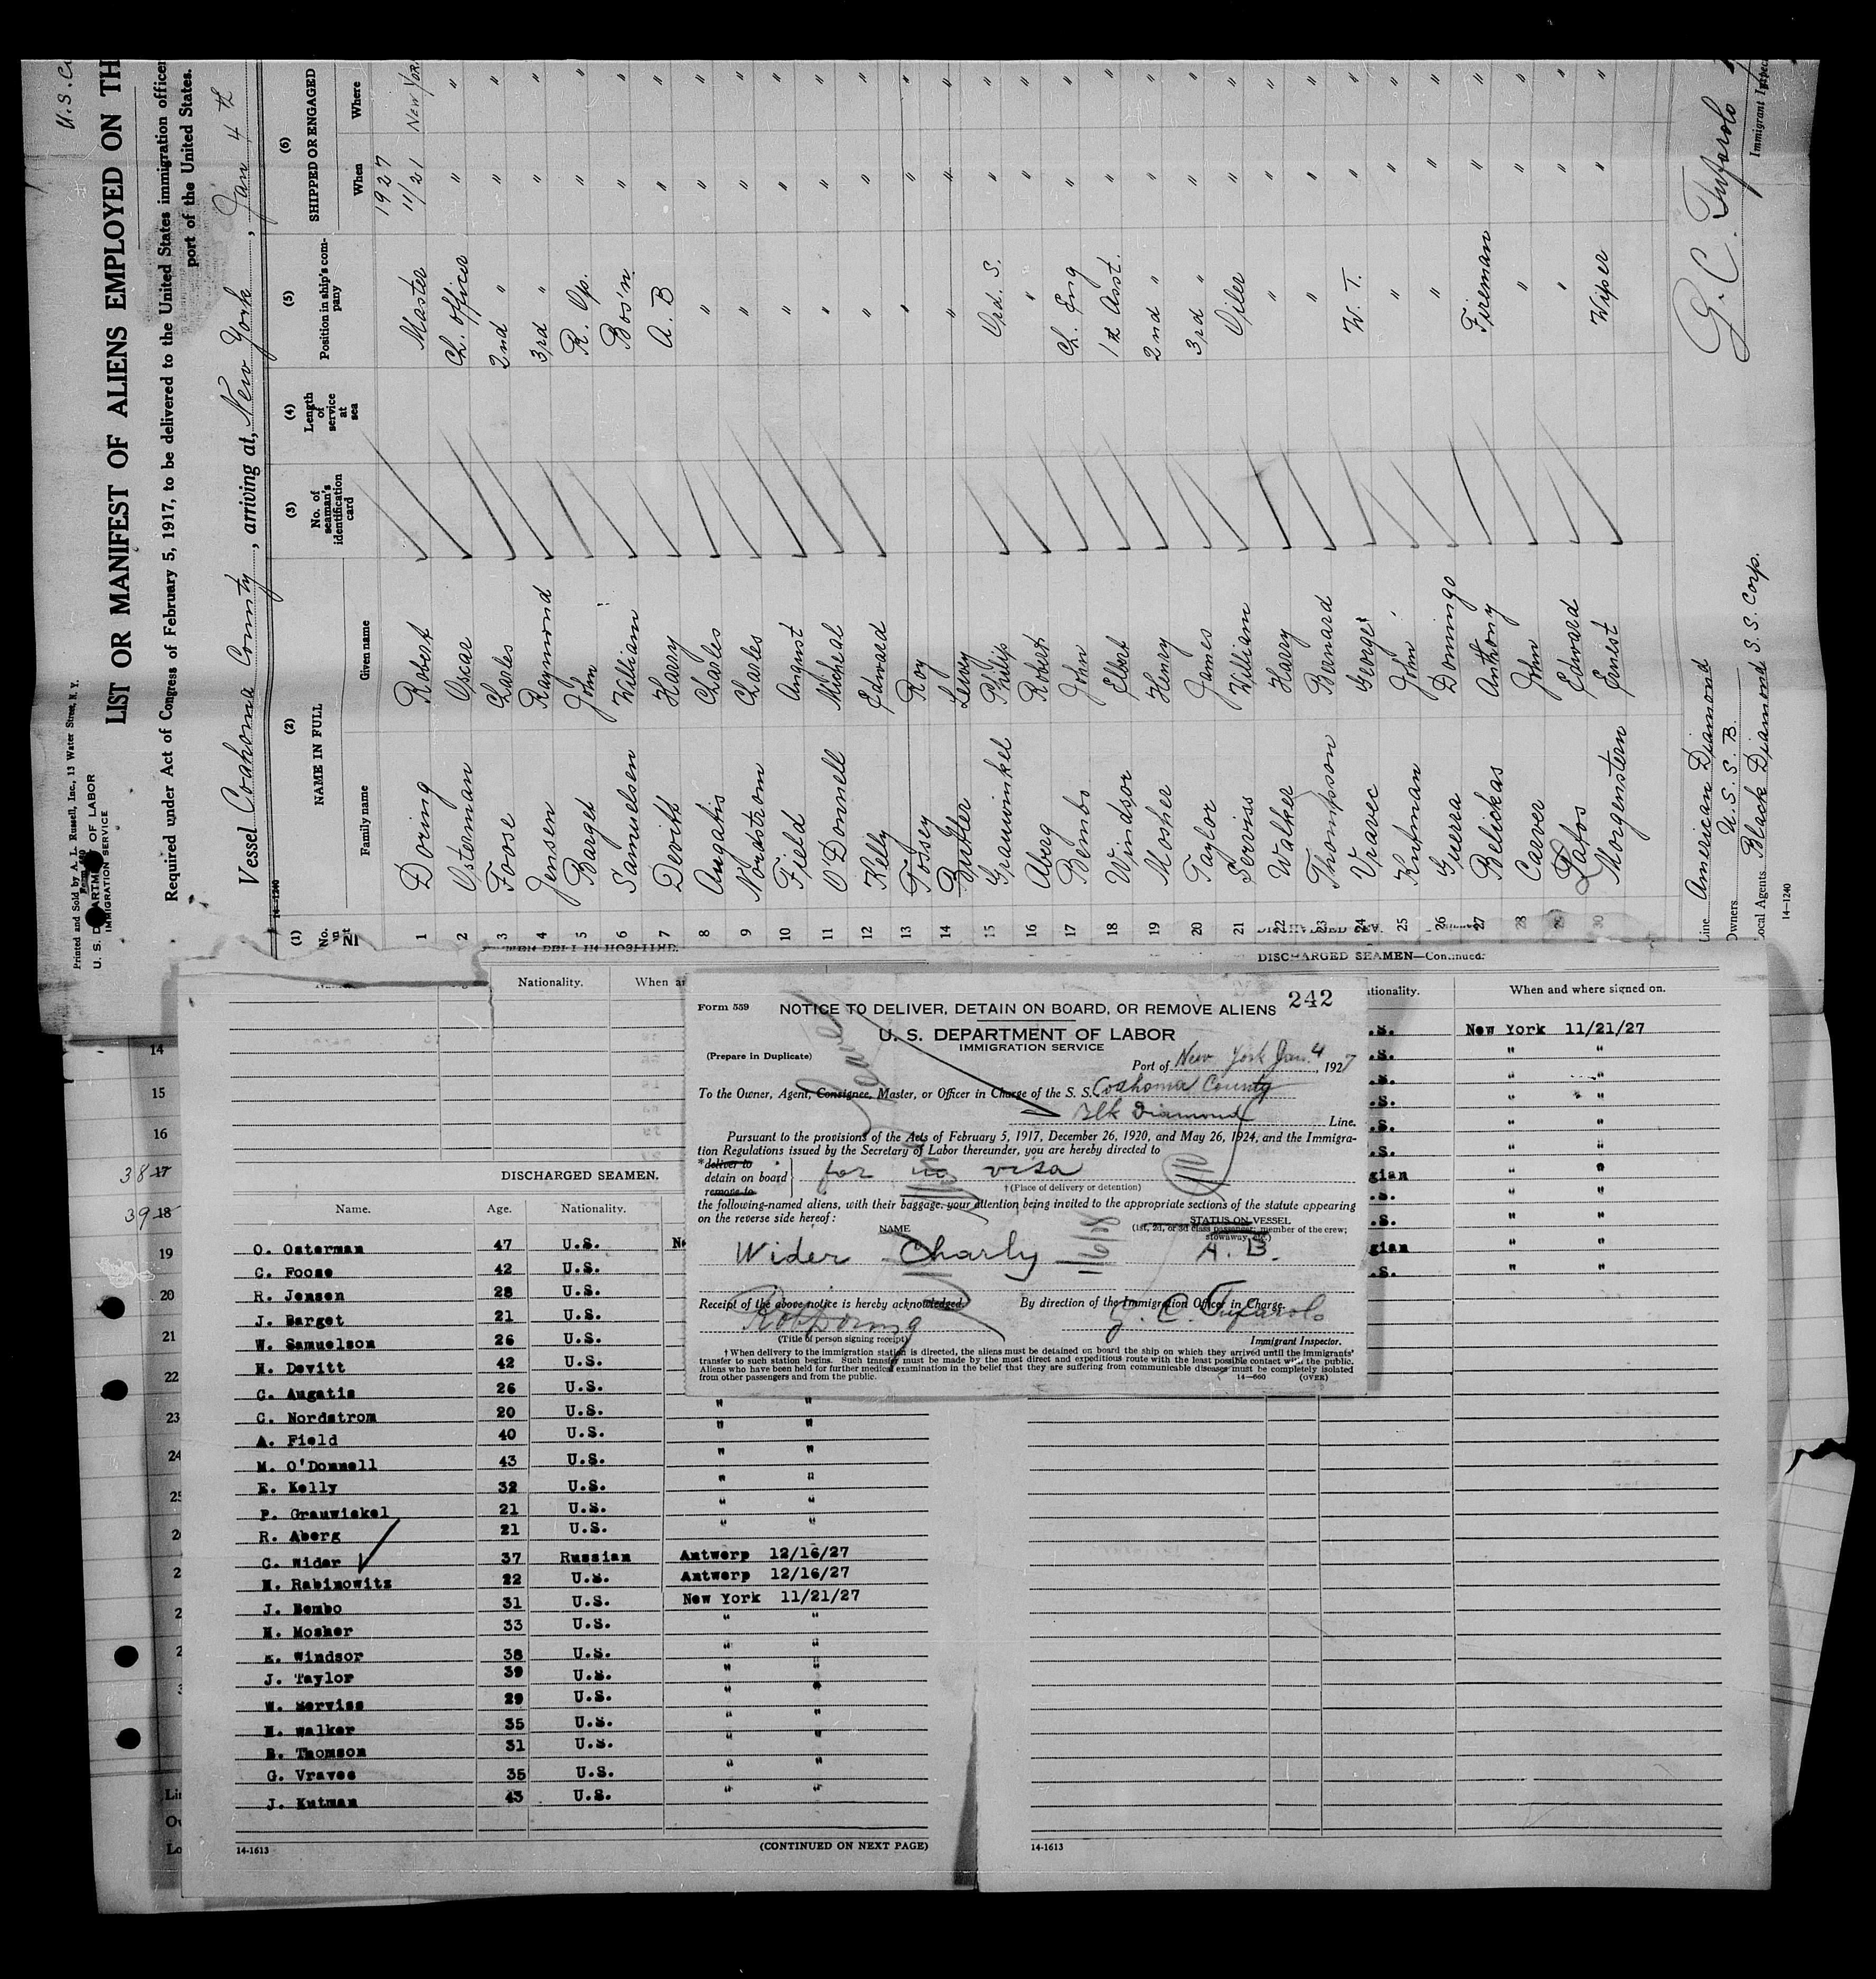 U.S. Co
Printed and Sold by A. L. Russell, Inc., 13 Water Street, N. Y.
U. S. DEPARTMENT OF LABOR
IMMIGRATION SERVICE
LIST OR MANIFEST OF ALIENS EMPLOYED ON TH
Required under Act of Congress of February 5, 1917, to be delivered to the United States immigration officer
port of the United States.
Vessel Coahoma County, arriving at, New York, Jan 4th
14-1240
(1) (2) (3) (4) (5) (6)
No. NAME IN FULL No. of seaman's identification card Length of service at sea Position in ship's company SHIPPED OR ENGAGED
Family name Given name When Where
1927
1 Doring Robert Master 11/21 New York
2 Osterman Oscar Ch. Officer " "
3 Foose Charles 2nd " " "
4 Jensen Raymond 3rd " " "
5 Barget John R. Op. " "
6 Samuelsen William Bos'n " "
7 Devitt Harry A. B " "
8 Augatis Charles " " "
9 Nordstrom Charles " " "
10 Field August " " "
11 O'Donnell Micheal " " "
12 Kelly Edward " " "
13 Fossey Roy " " "
14 Butler Lesley " " "
15 Grauwinkel Philip Ord. S. " "
16 Aberg Robert " " "
17 Bembo John Ch. Eng " "
18 Windsor Elbert 1st Asst. " "
19 Mosher Henry 2nd " " "
20 Taylor James 3rd " " "
21 Serviss William Oiler " "
22 Walker Harry " " "
23 Thompson Bernard " " "
24 Vravec George W. T. " "
25 Kutman John " " "
26 Guerra Domingo " " "
27 Belickas Anthony Fireman " "
28 Carver John " " "
29 Latos Edward " " "
30 Morgenstern Ernest Wiper " "
Line American Diamond
Owners U.S.S.B.
Local Agents Black Diamond S.S. Corp.
14-1240
G. C. Tufarolo
Immigrant Inspec
DISCHARGED SEAMEN—Continued.
Nationality. When a
tionality. When and where signed on.
.S. New York 11/21/27
.S. " "
.S. " "
.S. " "
.S. " "
.S. " "
gian " "
.S. " "
.S. " "
gian " "
.S. " "
14
15
16
38 17
39 18
19
20
21
22
23
24
Form 559
NOTICE TO DELIVER, DETAIN ON BOARD, OR REMOVE ALIENS 242
U. S. DEPARTMENT OF LABOR
IMMIGRATION SERVICE
(Prepare in Duplicate)
Port of New York Jan. 4, 1927
To the Owner, Agent, Consignee, Master, or Officer in Charge of the S. S. Coahoma County
Blk Diamond Line.
Pursuant to the provisions of the Acts of February 5, 1917, December 26, 1920, and May 26, 1924, and the Immigra-
tion Regulations issued by the Secretary of Labor thereunder, you are hereby directed to
*deliver to
detain on board for no visa
remove to
† (Place of delivery or detention)
the following-named aliens, with their baggage, your attention being invited to the appropriate sections of the statute appearing
on the reverse side hereof:
NAME STATUS ON VESSEL
(1st, 2d, or 3d class passenger; member of the crew;
stowaway, etc.)
Wider Charly A. B.
1/6/28
Receipt of the above notice is hereby acknowledged. By direction of the Immigration Officer in Charge.
G. C. Tufarolo
(Title of person signing receipt) Immigrant Inspector.
† When delivery to the immigration station is directed, the aliens must be detained on board the ship on which they arrived until the immigrants'
transfer to such station begins. Such transfer must be made by the most direct and expeditious route with the least possible contact with the public.
Aliens who have been held for further medical examination in the belief that they are suffering from communicable diseases must be completely isolated
from other passengers and from the public. 14—660 (OVER)
DISCHARGED SEAMEN.
Name. Age. Nationality.
O. Osterman 47 U.S. Ne
C. Foose 42 U.S.
R. Jensen 28 U.S.
J. Barget 21 U.S.
W. Samuelson 26 U.S.
H. Devitt 42 U.S.
C. Augatis 26 U.S.
C. Nordstrom 20 U.S. " "
A. Field 40 U.S. " "
M. O'Donnell 43 U.S. " "
E. Kelly 32 U.S. " "
P. Grauwiekel 21 U.S. " "
R. Aberg 21 U.S. " "
C. Wider 37 Russian Antwerp 12/16/27
H. Rabinowitz 22 U.S. Antwerp 12/16/27
J. Bembo 31 U.S. New York 11/21/27
H. Mosher 33 U.S. " "
E. Windsor 38 U.S. " "
J. Taylor 39 U.S. " "
W. Serviss 29 U.S. " "
H. Walker 35 U.S. " "
B. Thomson 31 U.S. " "
G. Vraves 35 U.S. " "
J. Kutman 43 U.S. " "
14-1613 (CONTINUED ON NEXT PAGE) 14-1613